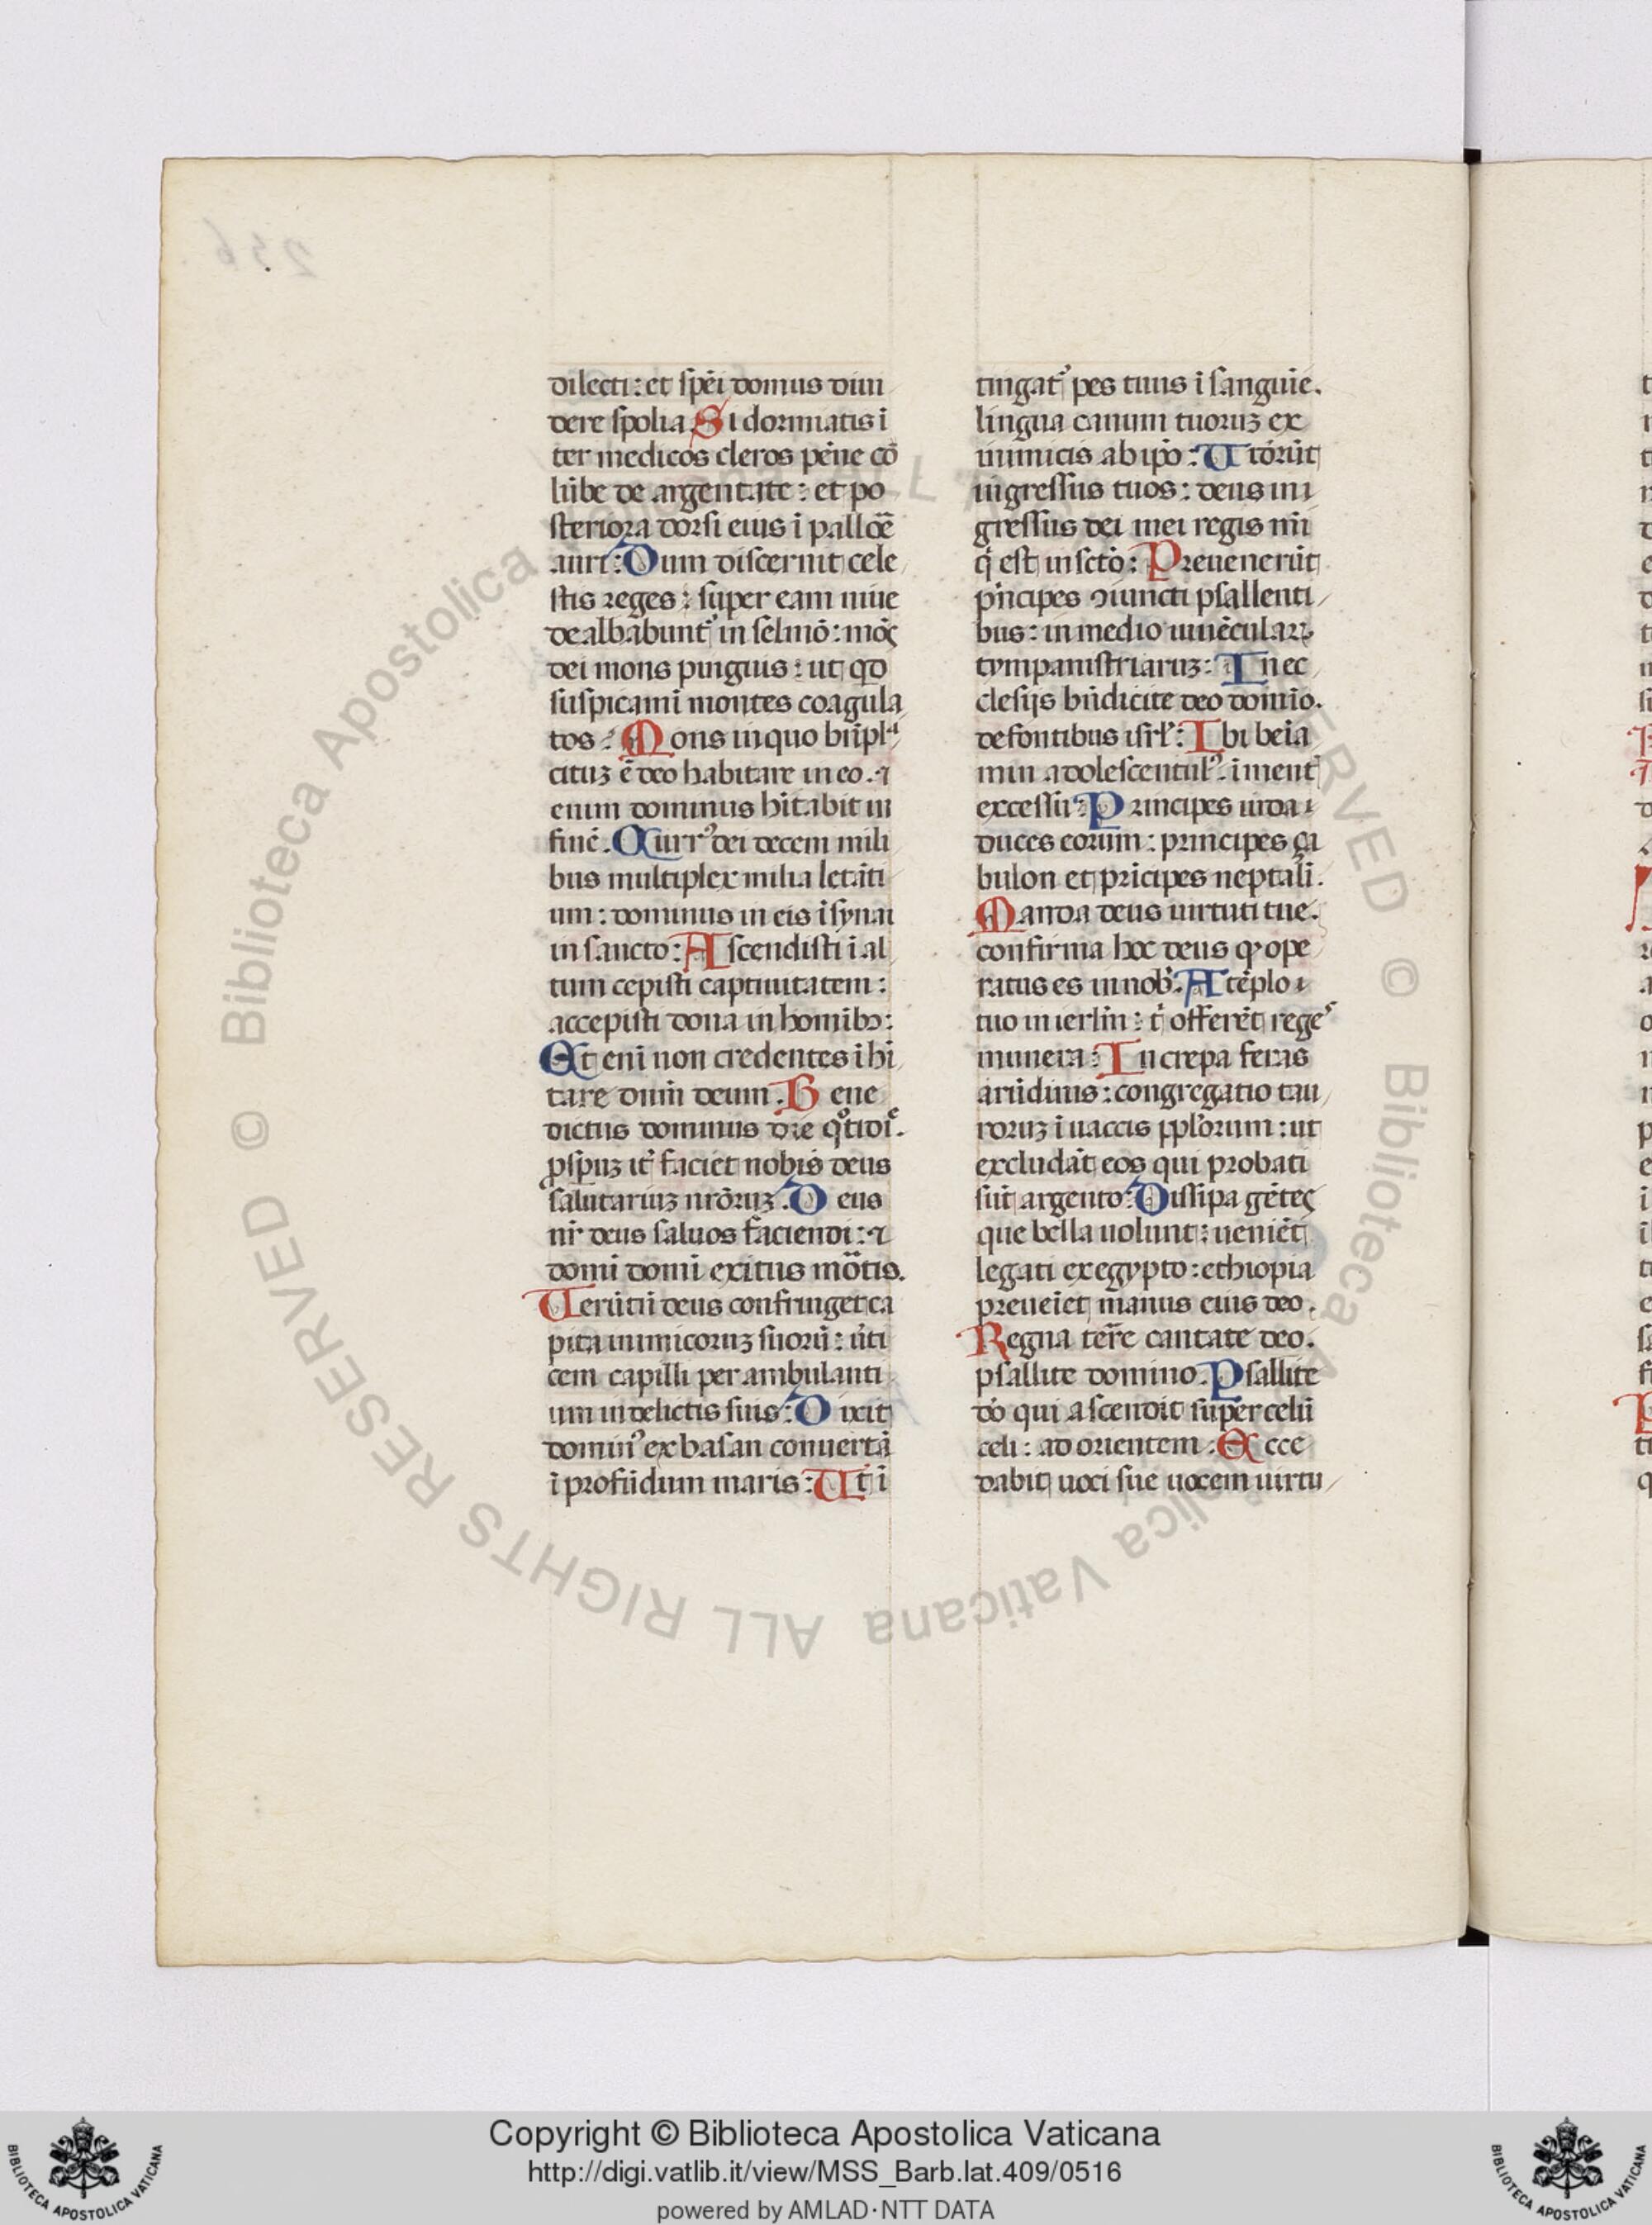 dilecti: et spēi domus diui
dere spolia Si dormiatis ī
ter medicos cleros pēne cō
lūbe de argentate: et po
steriora dorsi eius ī pallōē
auri: Dum discernit cele
stis reges: super eam niue
dealbabunt᷑ in selmō: mōs
dei mons pinguis: ut qd
suspicamī montes coagula
tos: Mons in quo bn̄pla
cituz ē deo habitare in eo. ⁊
enim dominus hītabit in
finē. Curr᷒ dei decem mili
bus multiplex milia letāti
um: dominus in eis ī synai
in sancto: Ascendisti ī al
tum cepisti captiuitatem:
accepisti dona in homībꝫ:
Et enī non credentes ī hī
tare dn̄m deum. Bene
dictus dominus die qͦtidī.
ꝓspuz it᷑ faciet nobis deus
salutariuz nrōruz. Deus
nr̄ deus saluos faciendi: ⁊
domī domī exitus mōtis.
Uerūtn̄ deus confringet ca
pita inimicoruz suorū: ūti
cem capilli perambulanti
um in delictis suis: Dixit
domin᷒ ex basan conuertā
ī profūdum maris: Ut ī
tingat᷑ pes tuus ī sanguīe.
lingua canum tuoruz ex
inimicis ab ip̄o: Uiderūt
ingressus tuos: deus in
gressus dei mei regis mī
q̄ est in sctō: Preuenerūt
pͥncipes ꝯiuncti psallenti
bus: in medio iuuēcularꝝ
tympanistriaruz: In ec
clesijs bn̄dicite deo domīo.
de fontibus isrl̄: Ibi beīa
min adolescentul᷒. ī ment᷑
excessu: Principes iuda
duces eorum: principes ça
bulon et prīcipes neptali.
Manda deus uirtuti tue.
confirma hoc deus qͦ ope
ratus es in nob᷒. A tēplo
tuo in ierlm̄: tͥ offerēt reges
munera: Increpa feras
arūdinis: congregatio tau
roruz ī uaccis pplōrum: ut
excludāt eos qui probati
sūt argento: Dissipa gētes
que bella uolunt: ueniēt
legati ex egypto: ethiopia
preueīet manus eius deo.
Regna terr̄e cantate deo.
psallite domino. Psallite
dō qui ascendit super celū
celi: ad orientem. Ecce
dabit uoci sue uocem uirtu
236
© Biblioteca Apostolica Vaticana ALL RIGHTS RESERVED
Copyright © Biblioteca Apostolica Vaticana
http://digi.vatlib.it/view/MSS_Barb.lat.409/0516
powered by AMLAD·NTT DATA
BIBLIOTECA APOSTOLICA VATICANA
BIBLIOTECA APOSTOLICA VATICANA